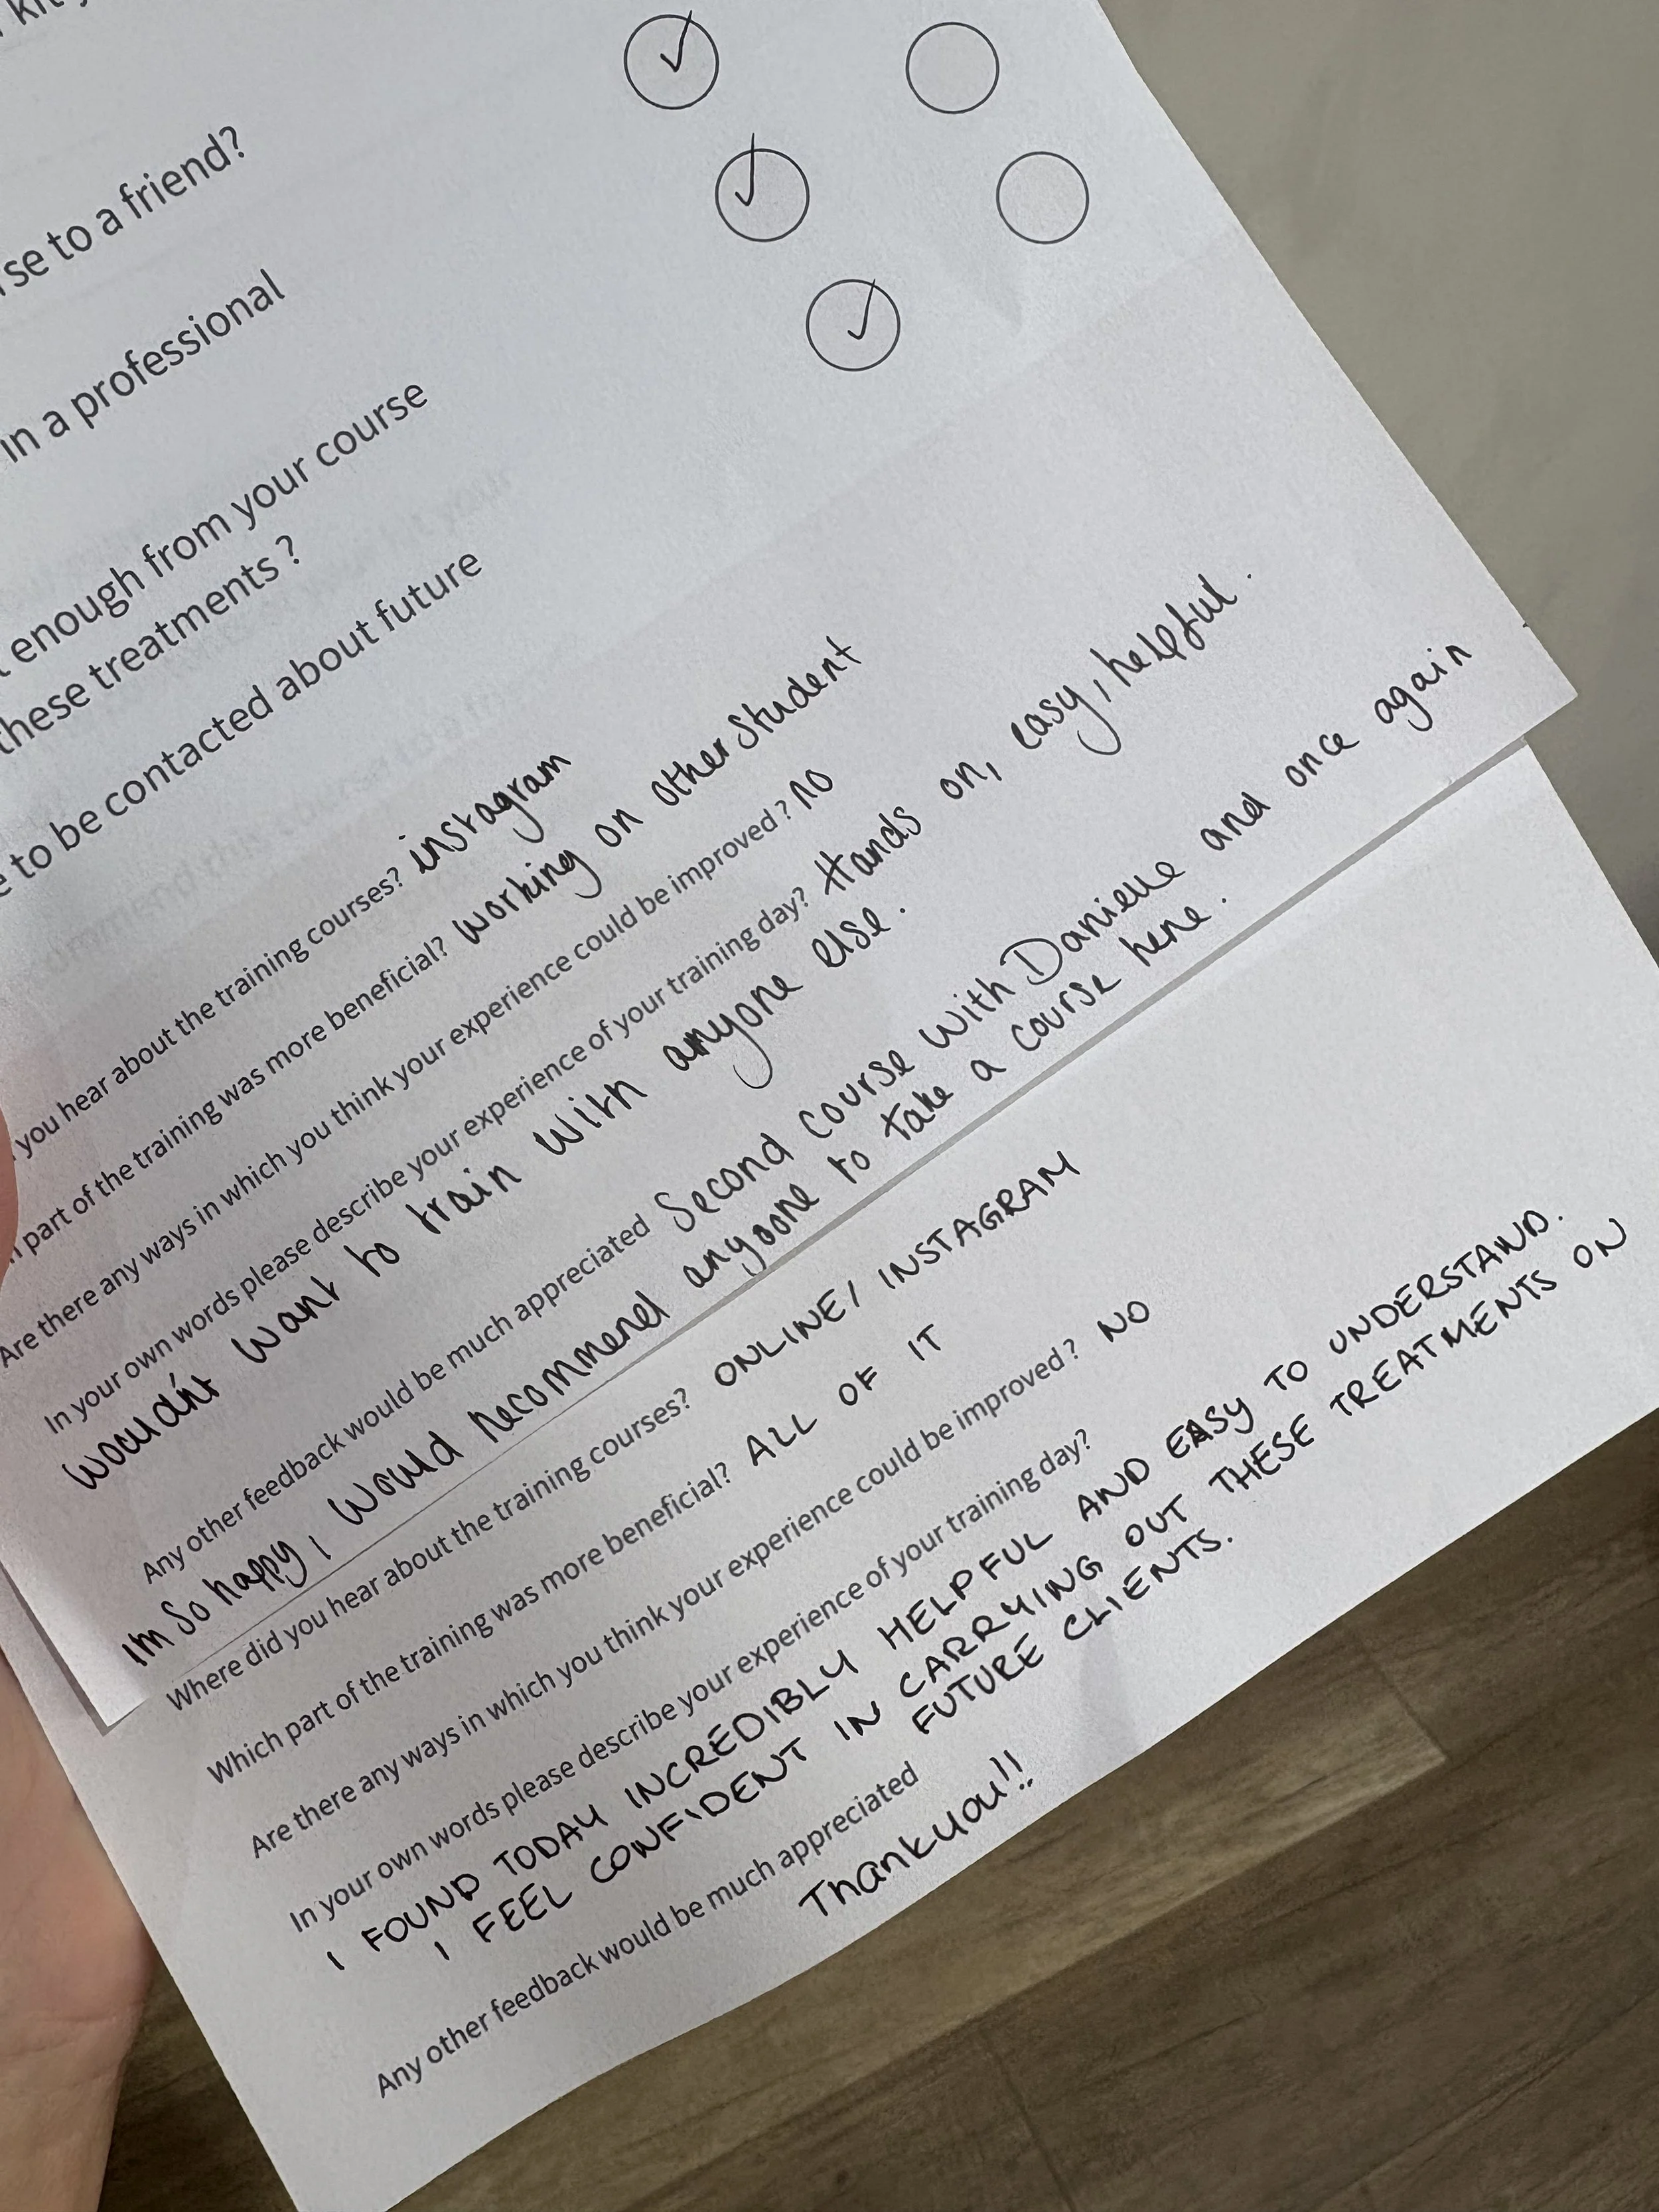 se to a friend?
in a professional
enough from your course
these treatments ?
to be contacted about future
you hear about the training courses? instagram
part of the training was more beneficial? working on other student
Are there any ways in which you think your experience could be improved ? no
In your own words please describe your experience of your training day? Hands on, easy, helpful.
Wouldn't want to train with anyone else.
Any other feedback would be much appreciated Second course with Danielle and once again
Im so happy, I would recommend anyoone to take a course here.
Where did you hear about the training courses? ONLINE/ INSTAGRAM
Which part of the training was more beneficial? ALL OF IT
Are there any ways in which you think your experience could be improved ? NO
In your own words please describe your experience of your training day?
I FOUND TODAY INCREDIBLY HELPFUL AND EASY TO UNDERSTAND.
I FEEL CONFIDENT IN CARRYING OUT THESE TREATMENTS ON
FUTURE CLIENTS.
Any other feedback would be much appreciated
Thankyou!!